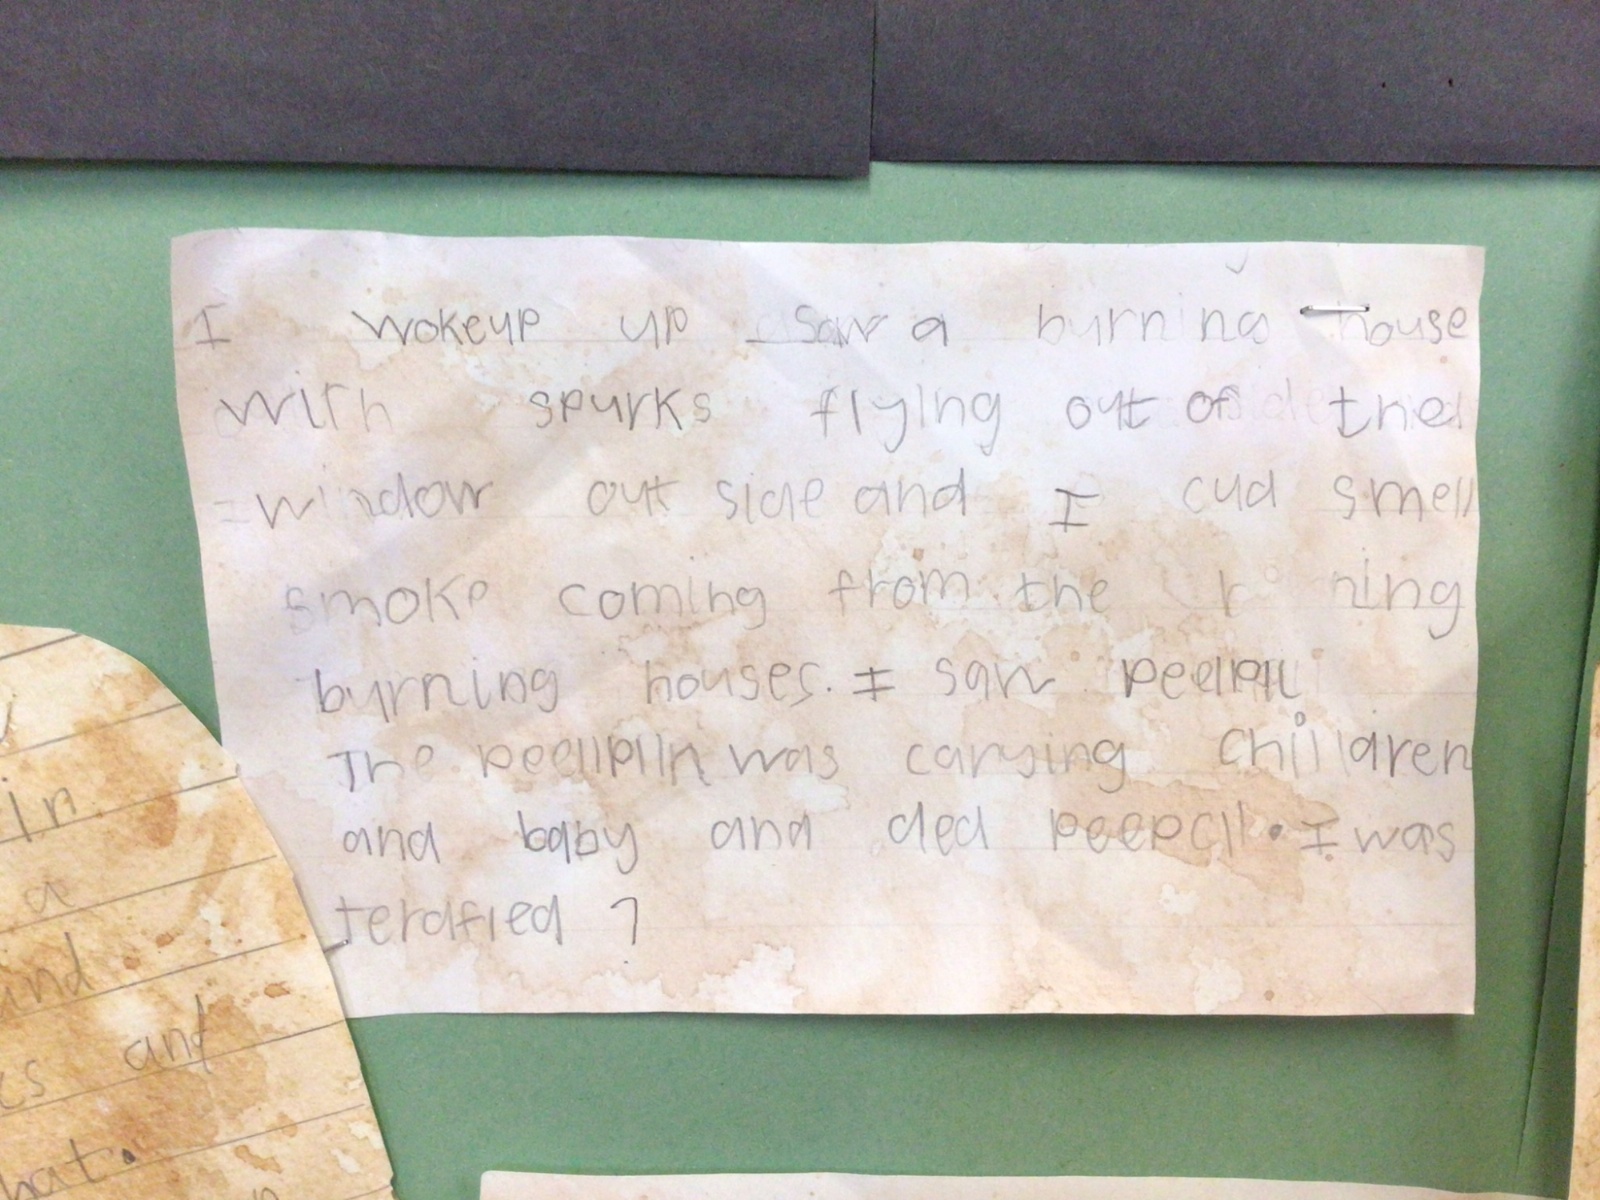 I wokeup up saw a burning house
with spurks flying out of the
window out side and I cud smell
smoke coming from the
burning houses. I saw
The was carying
and baby and ded I was
terafied ?
in
a
and
es and
hat.